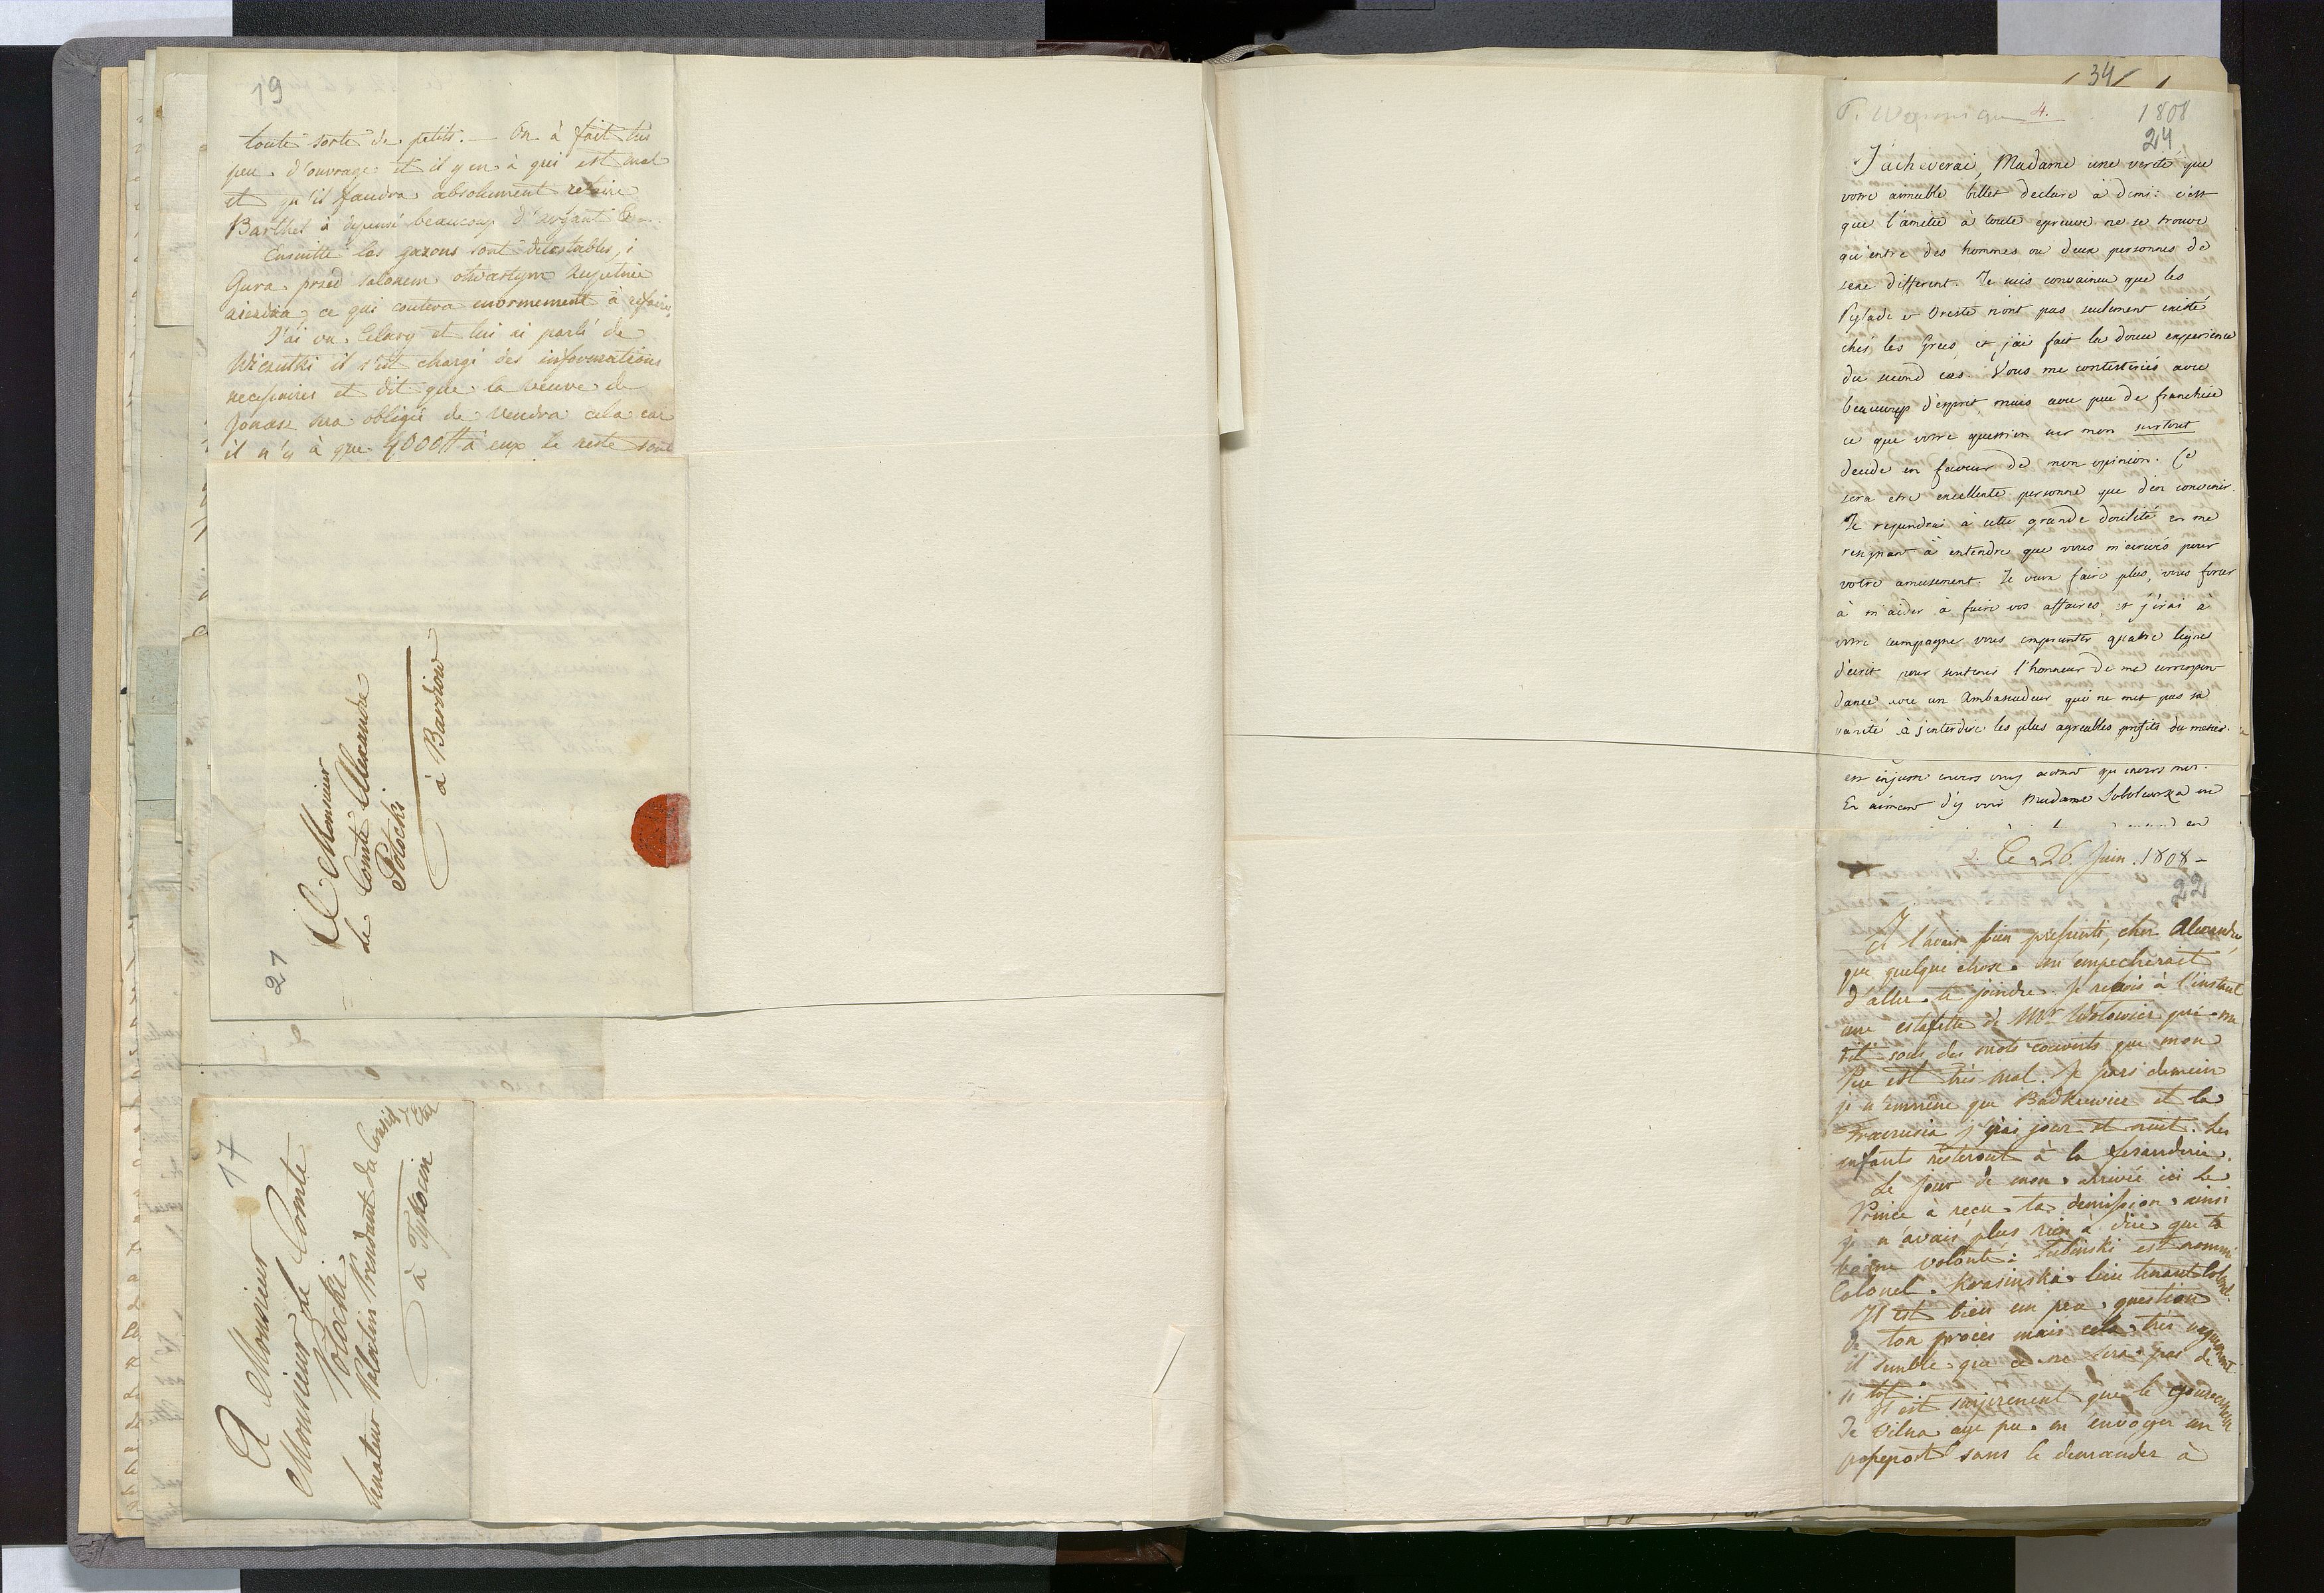 19
toute sorte de petits. — On à fait très
peu d'ouvrage et il y en à qui est mal
et qu'il faudra absolument refaire
Barthel à depensé beaucoup d'argent
Ensuitte les gazons sont detestables, i
Gura przed salonem otwartym zupełnie
ce qui coutera enormement à refaire.
J'ai vu et lui ai parlé de
il s'est chargé des informations
necessaires et dit que la veuve de
sera obligée de vendre cela car
il n'y à que 4000 # à eux le reste sont
A Monsieur
Le Comte Alexandre
Potocki
à Bardiow
21
17
A Monsieur
Monsieur le Comte
Potocki
Senateur Palatin President du Conseil
à Tykocin
34
4.
1808
24
J'acheverai, Madame une verité que
votre aimable billet declare à demi: c'est
que l'amitié à toute epreuve ne se trouve
qu'entre des hommes ou deux personnes de
sexe different. Je suis convaincu que les
Pylade et Oreste n'ont pas seulement existé
chés les Grecs, et j'ai fait la douce experience
du second cas. Vous me contesteriés avec
beaucoup d'esprit, mais avec peu de franchise
ce que votre question sur mon surtout
decide en faveur de mon opinion. Ce
sera etre excellente personne que d'en convenir.
Je repondrai à cette grande docilité en me
resignant à entendre que vous m'ecrivés pour
votre amusement. Je veux faire plus, vous forcer
à m'aider à faire vos affaires, et j'irai à
votre campagne vous emprunter quatre lignes
d'ecrit pour soutenir l'honneur de me correspon-
dance avec un Ambassadeur qui ne met pas sa
vanité à s'interdire les plus agreables profits du metier.
est injuste envers vous autant qu'envers moi.
En aimant d'y voir Madame Sobolewska
2. Ce 26. Juin. 1808 –
22
Je l'avais bien pressenti, cher Alexandre,
que quelque chose m'empecherait
d'aller te joindre. Je reçois à l'instant
une estafette de Mr Wolowicz qui me
dit sous des mots couverts que mon
Pere est très mal. Je pars demain
je n'emmène que Badkiewicz et la
j'irai jour et nuit. Les
enfants resteront à la fesanderie.
Le jour de mon arrivée ici le
Prince à reçu ta demission, ainsi
je n'avais plus rien à dire que ta
bonne volonté. Lubinski est nommé
Colonel. Krasinski lieutenant Colonel.
Il est bien un peu question
de ton procès mais cela très vaguement
il semble que ce ne sera pas de
si tot.
Il est surprenant que le gouverneur
de Vilna aye pu m'envoyer un
passeport sans le demander à